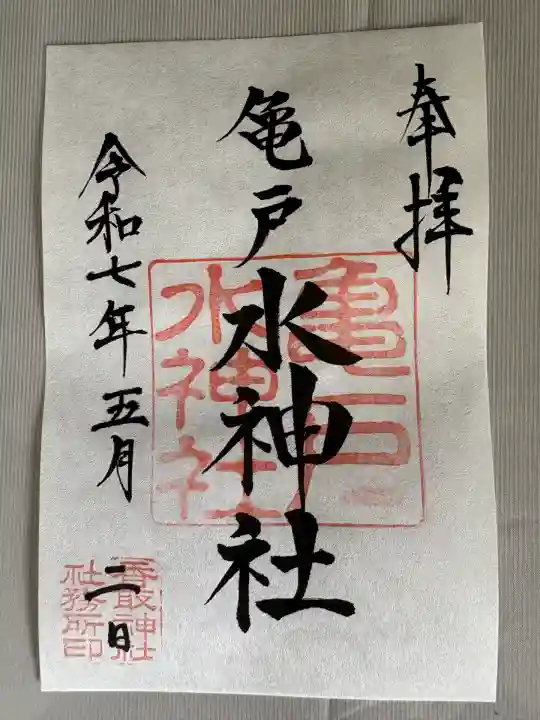 奉拝
亀戸水神社
亀戸
水神社
令和七年五月二日
香取神社
社務所印